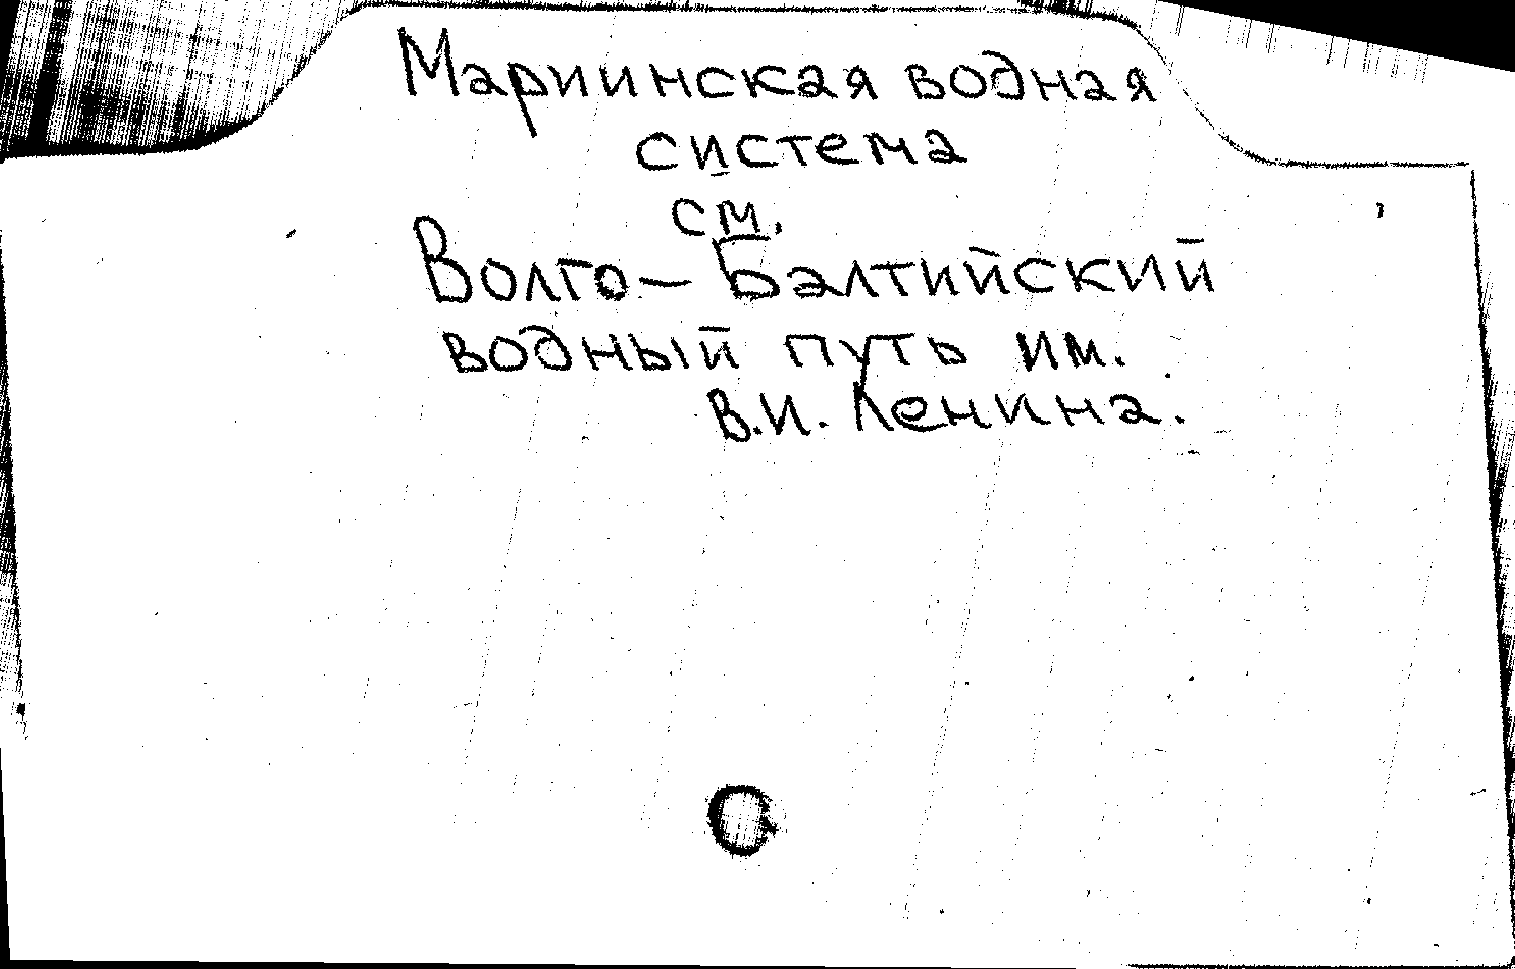 Мариинская водная
система
см.
Волго-Балтийский
водный путь им.
В.И. Ленина.